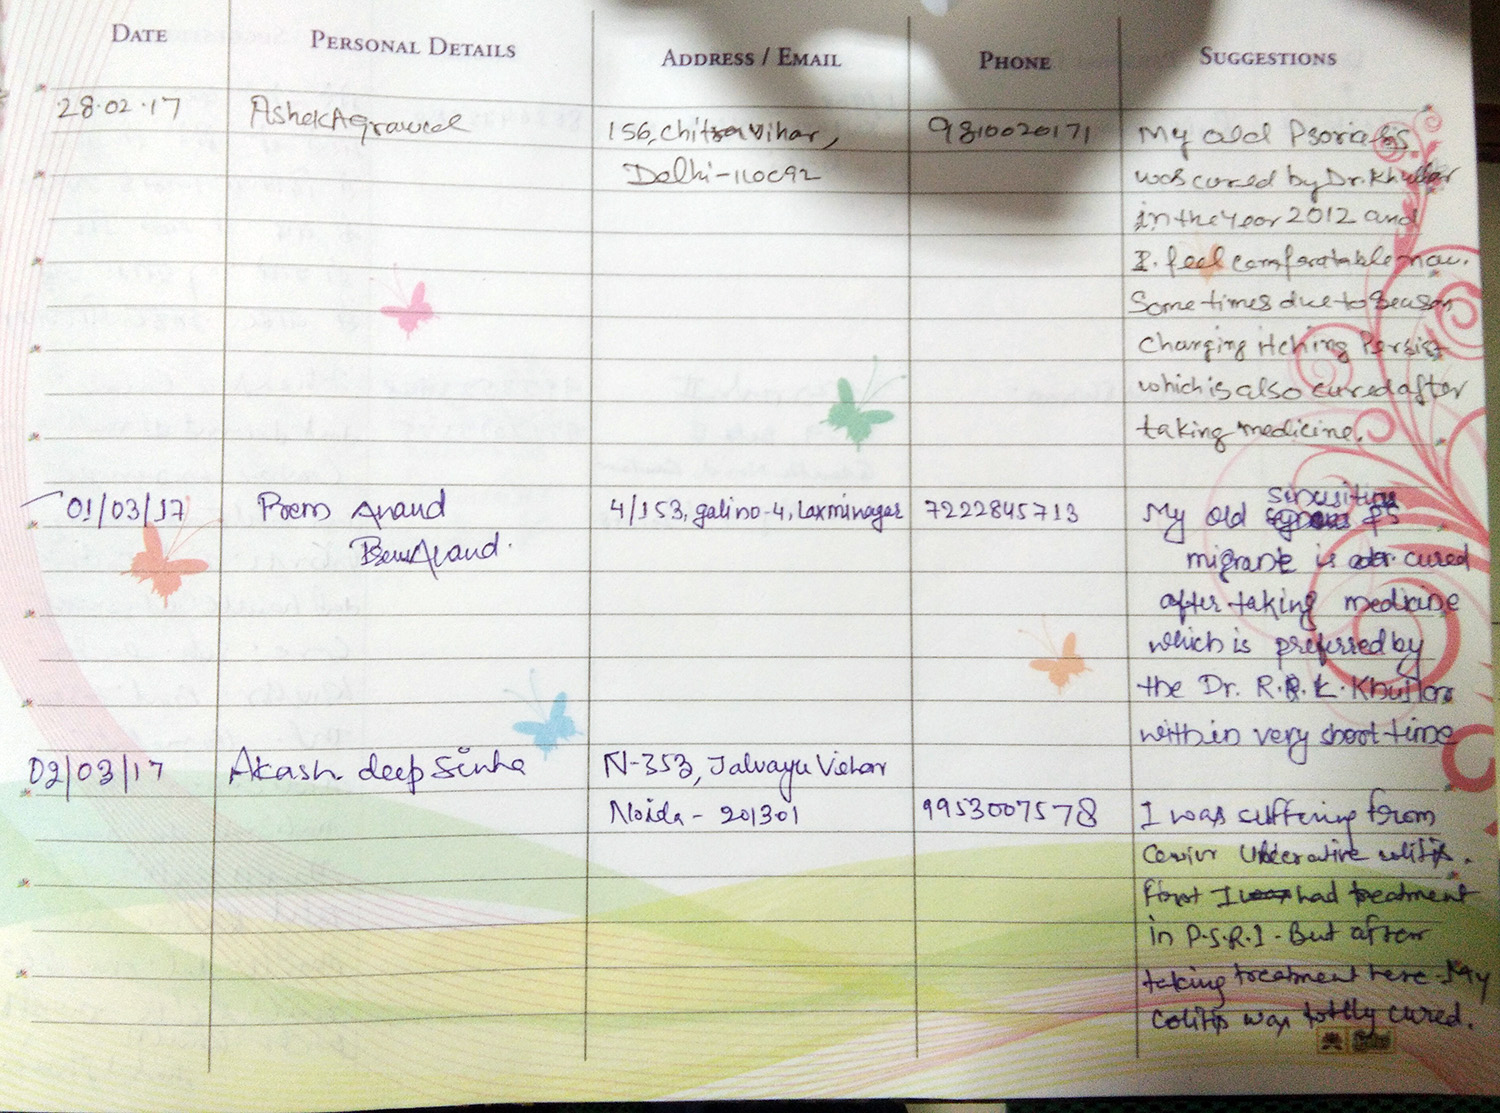 DATE
PERSONAL DETAILS
ADDRESS / EMAIL
PHONE
SUGGESTIONS
28.02.17
Ashok Agrawal
156, Chitra Vihar,
Delhi-110092
9810020171
My old Psoriasis
was cured by Dr. Khullar
in the year 2012 and
I. feel comforatable now.
Some times due to Season
Changing itching Persist
which is also cured after
taking medicine.
01/03/17
Prem Anand
Prem Anand.
4/153, gali no-4, Laxminagar
7222845713
My old sinusitis
migrane is cured
after taking medicine
which is preferred by
the Dr. R.R.K. Khullar
within very short time
02/03/17
Akash deep Sinha
N-353, Jalvayu Vihar
Noida - 201301
9953007578
I was suffering from
Ulcerative colitis.
first I had treatment
in P.S.R.I - But after
taking treatment here - My
colitis was totlly cured.